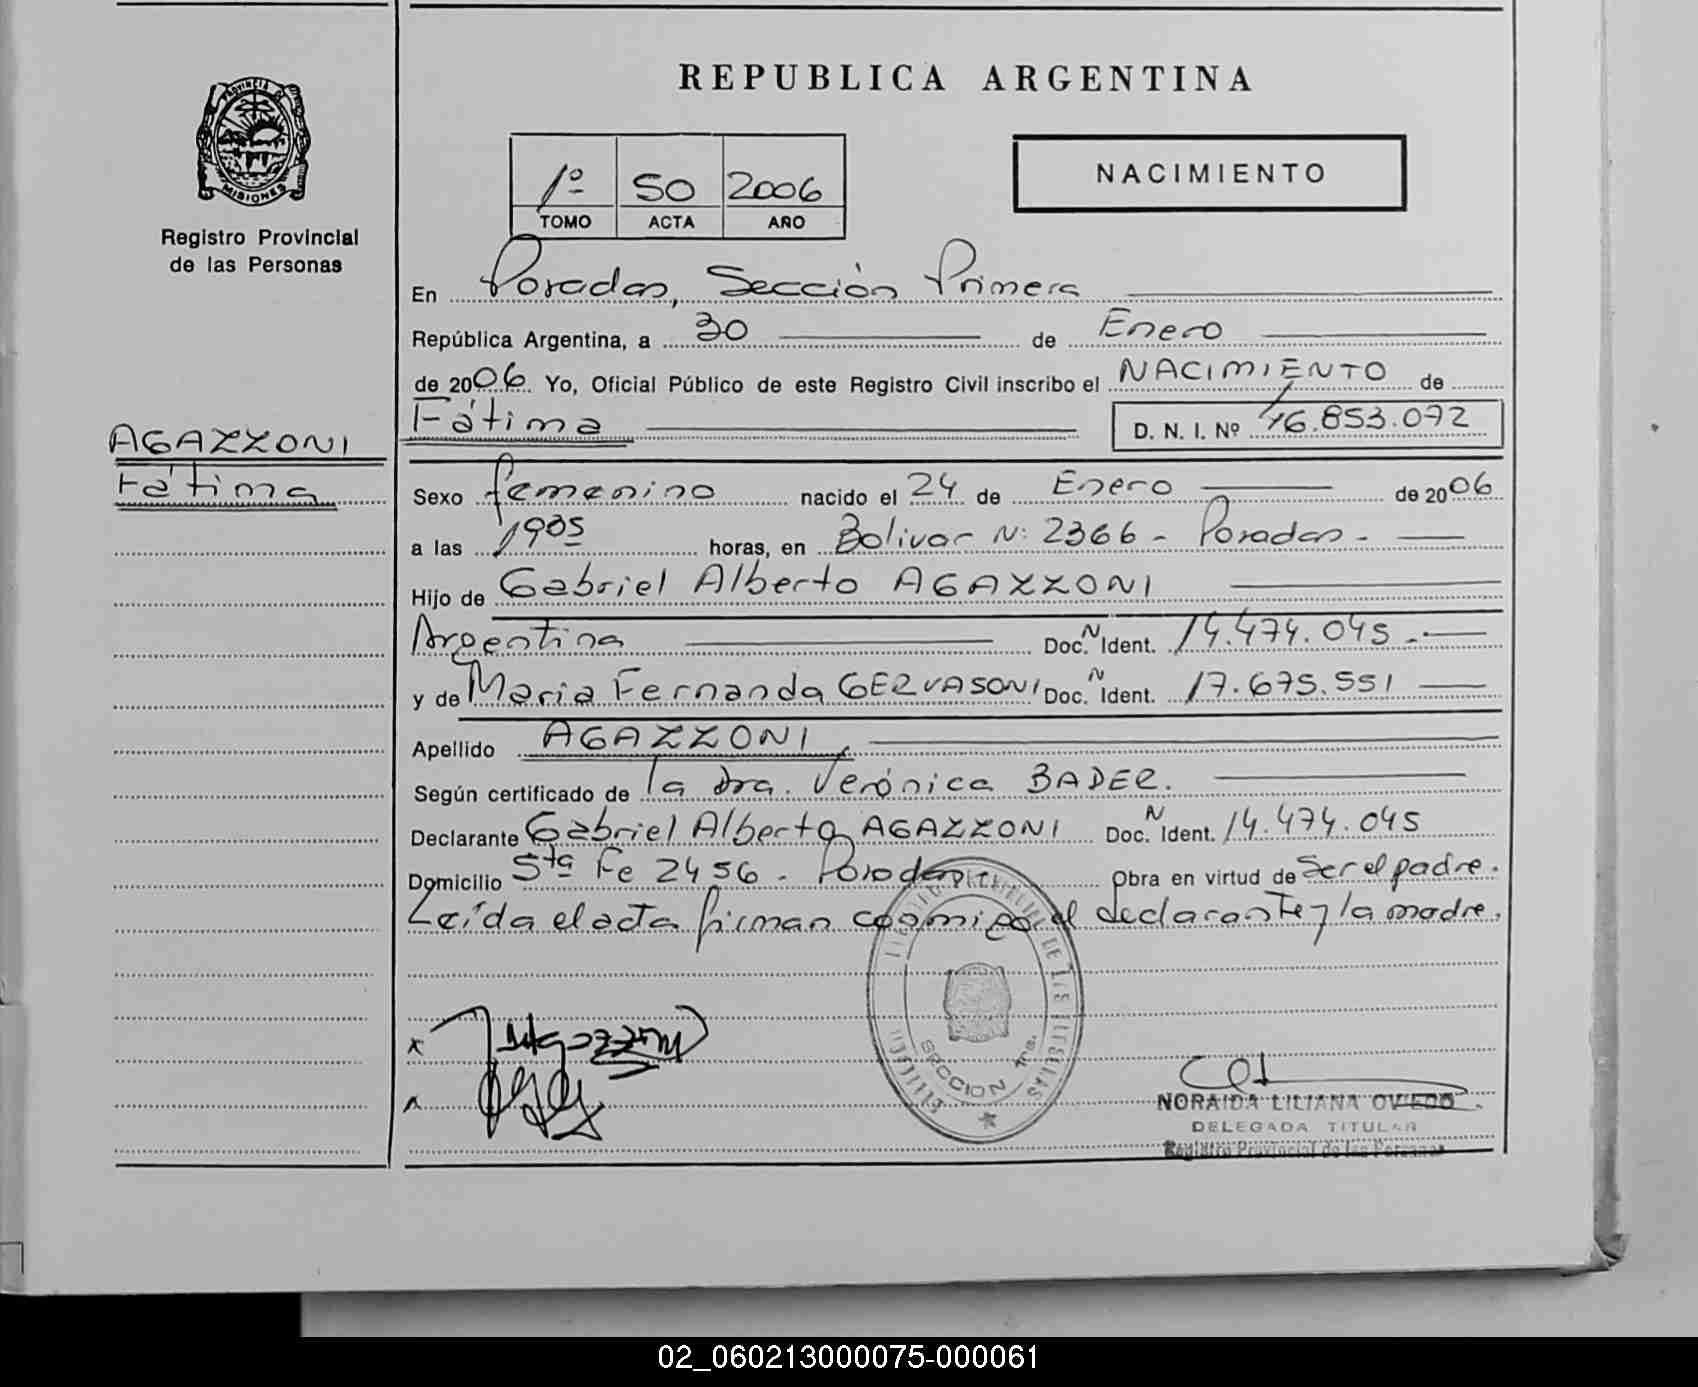 REPUBLICA ARGENTINA
PROVINCIA DE
MISIONES
Registro Provincial
de las Personas
1º 50 2006
TOMO ACTA AÑO
NACIMIENTO
En Posadas, Sección Primera
República Argentina, a 30 de Enero
de 2006 Yo, Oficial Público de este Registro Civil inscribo el NACIMIENTO de
Fátima D. N. I. Nº 46.853.072
AGAZZONI
Fátima
Sexo femenino nacido el 24 de Enero de 2006
a las 1905 horas, en Bolivar Nº 2366 - Posadas -
Hijo de Gabriel Alberto AGAZZONI
Argentina Doc. N Ident. 14.474.045.-
y de Maria Fernanda GERVASONI Doc. N Ident. 17.675.551
Apellido AGAZZONI
Según certificado de la Dra. Verónica BADER.
Declarante Gabriel Alberto AGAZZONI Doc. N Ident. 14.474.045
Domicilio Sta Fe 2456 - Posadas - Obra en virtud de Ser el padre.
Leída el acta firman conmigo el declarante y la madre.
SECCION 1ra.
NORAIDA LILIANA OVIEDO
DELEGADA TITULAR
Registro Provincial de las Personas
02_060213000075-000061